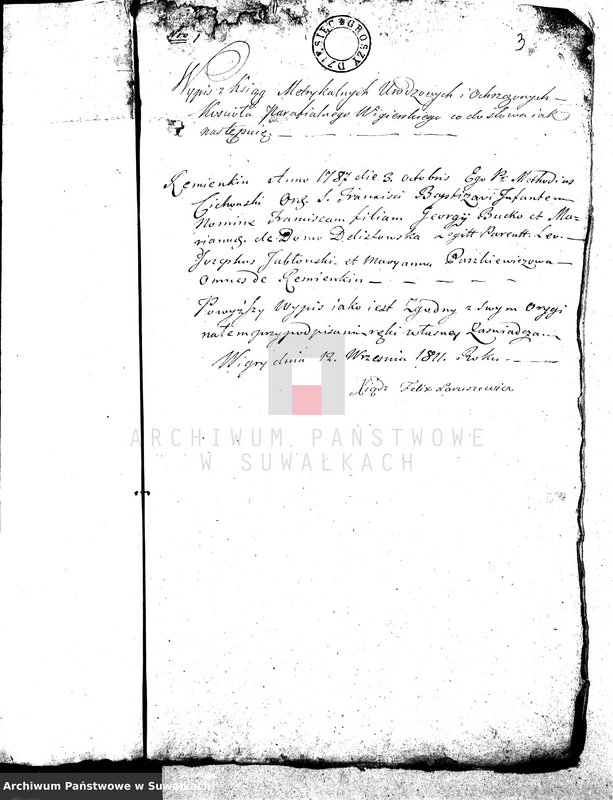 Nro 1
DZIESIĘC GROSZY
3
Wypis z Xiąg Metrykalnych Urodzonych i Ochrzczonych
Kościoła Parafialnego Wigierskiego co do słowa iak
następuie
Remienkin Anno 1787 die 3. Octobris Ego Pr Methodius
Cichowski Ord. S. Francisci Baptizavi Infantem
Nomine Franciscam filiam Georgij Bucko et Ma-
riannæ de Domo Delistowska Legitt Parentt. Lev.
Josephus Jabłonski et Maryanna Paszkiewiczowa
omnes de Remienkin
Powyższy Wypis iako iest Zgodny z swym Orygi
nałem przy podpisaniu ręki własney Zaświadczam
Wigry dnia 12. Września 1811. Roku
Xiądz Felix Naruszewicz
ARCHIWUM PAŃSTWOWE
W SUWAŁKACH
Archiwum Państwowe w Suwałkach